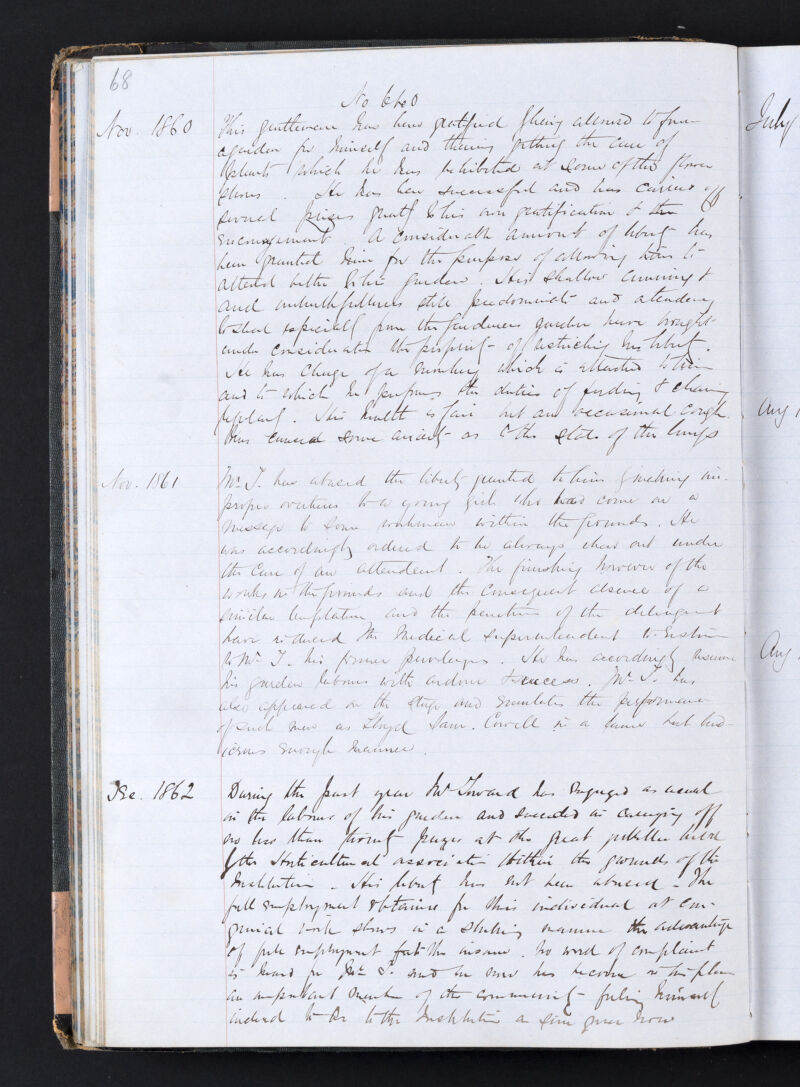 68
No 660
Nov. 1860 This gentleman has been gratified by being allowed to
a garden for himself and thereby getting the care of
plants which he has exhibited at some of the flower
shows. He has been successful and has carried off
several prizes greatly to his own gratification & the
encouragement. A considerable amount of liberty has
been granted him for the purpose of allowing him to
attend better to his garden. His shallow cunning &
and untruthfulness still predominate and a tendency
to steal especially from the gardeners garden have brought
under consideration the propriety of restricting his liberty.
He has charge of a monkey which is attached to him
and to which he performs the duties of feeding & cleaning
regularly. His health is fair but an occasional cough
has caused some anxiety as to the state of the lungs
Nov. 1861 Mr T. has abused the liberty granted to him by making im-
proper overtures to a young girl who had come on a
message to some workmen within the grounds. He
was accordingly ordered to be always when out under
the care of an attendant. The finishing however of the
works in the grounds and the consequent absence of a
similar temptation and the penitence of the delinquent
have induced the Medical Superintendent to restore
to Mr T. his former privileges. He has accordingly resumed
his garden labours with ardour & success. Mr T. has
also appeared on the stage and emulates the performance
of such men as Lloyd Sam. Cowell in a tame but lud-
icrous enough manner.
Dec. 1862 During the past year Mr has engaged as usual
in the labour of his garden and succeeded in carrying off
no less than twenty prizes at the great held
by the Horticultural association within the grounds of the
Institution. His liberty has not been abused. The
full employment obtained for this individual at con-
genial work shows in a striking manner the advantage
of full employment for the insane. No word of complaint
is heard from Mr T. and he now has become in his place
an important member of the community feeling himself
indeed to be to the Institution a sine qua non
July
Aug 1
Aug.